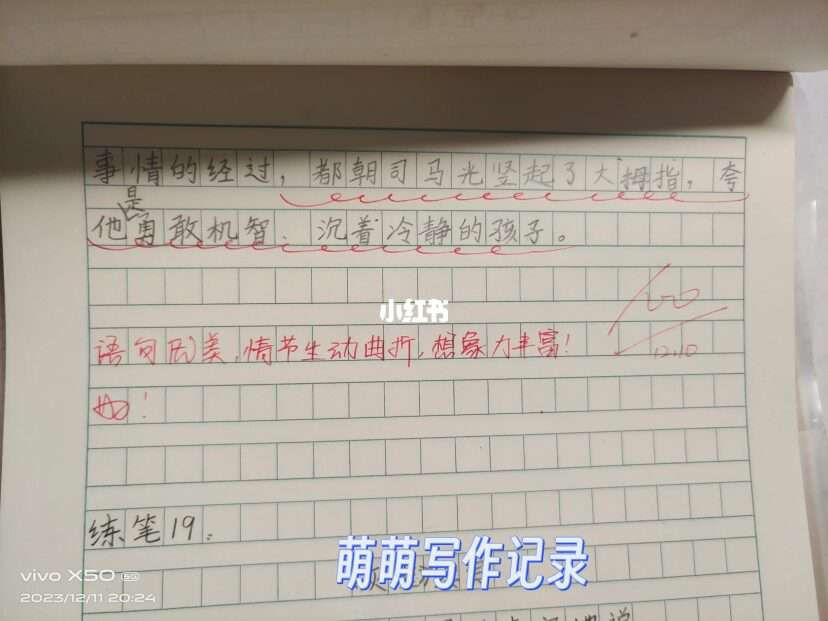 事情的经过，都朝司马光竖起了大拇指，夸
他是勇敢机智、沉着冷静的孩子。
小红书
100
语句优美，情节生动曲折，想象力丰富！
12.10
妙！
练笔19：
萌萌写作记录
vivo X50 5G
2023/12/11 20:24